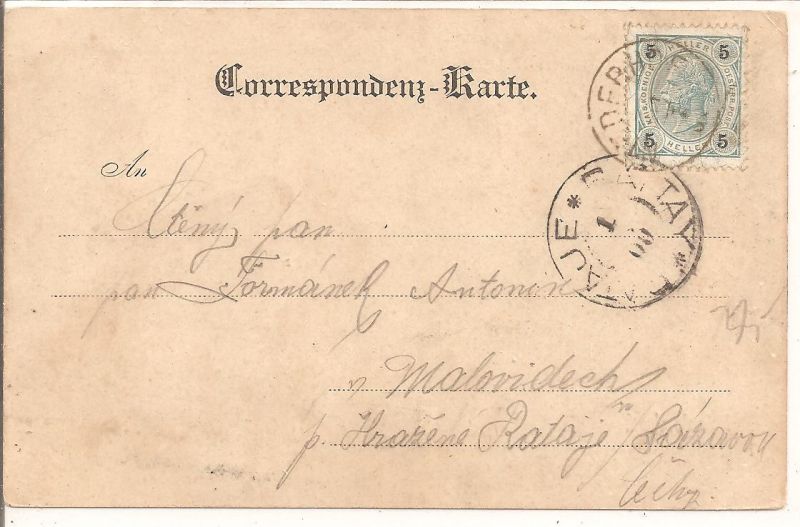 Correspondenz-Karte.
5 HELLER 5
KAIS. KOENIGL. OESTERR. POST
5 HELLER 5
An
Ctěný pan
pan Formánek Antonín
v Malovidech
p. Hražené Rataje n Sázavou
Čechy.